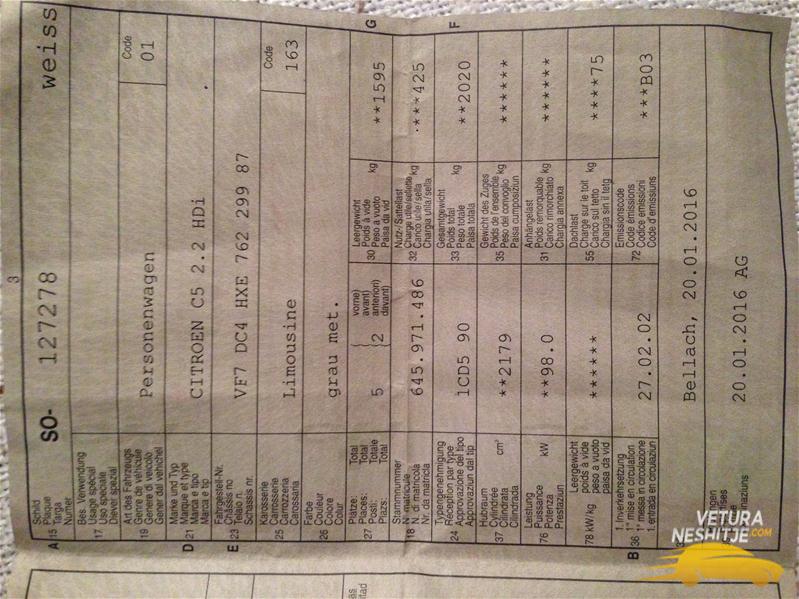 3
A 15 Schild
Plaque
Targa
Numer
SO- 127278 weiss
17 Bes. Verwendung
Usage spécial
Uso speciale
Diever spezial
19 Art des Fahrzeugs
Genre de véhicule
Genere di veicolo
Gener dal vehichel
Personenwagen
Code
01
D 21 Marke und Typ
Marque et type
Marca e tipo
Marca e tip
CITROEN C5 2.2 HDi
E 23 Fahrgestell-Nr.
Châssis no
Telaio n.
Schassis nr.
VF7 DC4 HXE 762 299 87
25 Karosserie
Carrosserie
Carrozzeria
Carossaria
Limousine
Code
163
26 Farbe
Couleur
Colore
Colur
grau met.
27 Plätze: Total
Places: Total
Posti: Totale
Plazs: Total
5
2
vorne)
avant)
anteriori)
davant)
30 Leergewicht
Poids à vide
Peso a vuoto
Paisa da vid
kg
**1595
G
18 Stammnummer
N. di matricola
Nr. da matricla
645.971.486
32 Nutz-/Sattellast
Charge utile/sellette
Carico utile/sella
Chargia utila/sella
kg
***425
24 Typengenehmigung
Réception par type
Approvazione del tipo
Approvaziun dal tip
1CD5 90
33 Gesamtgewicht
Poids total
Peso totale
Paisa totala
kg
**2020
F
37 Hubraum
Cylindrée
Cilindrata
Cilindrada
cm³
**2179
35 Gewicht des Zuges
Poids de l'ensemble
Peso del convoglio
Paisa cumposiziun
kg
******
76 Leistung
Puissance
Potenza
Prestaziun
kW
**98.0
31 Anhängelast
Poids remorquable
Carico rimorchiato
Chargia annexa
kg
******
78 kW/kg Leergewicht
poids à vide
peso a vuoto
paisa da vid
******
55 Dachlast
Charge sur le toit
Carico sul tetto
Chargia sin il tetg
kg
****75
B 36 1. Inverkehrsetzung
1re mise en circulation
1a messa in circolazione
1. entrada en circulaziun
27.02.02
72 Emissionscode
Code émissions
Codice emissioni
Code d'emissiuns
***B03
Bellach, 20.01.2016
20.01.2016 AG
VETURA
NESHITJE.COM